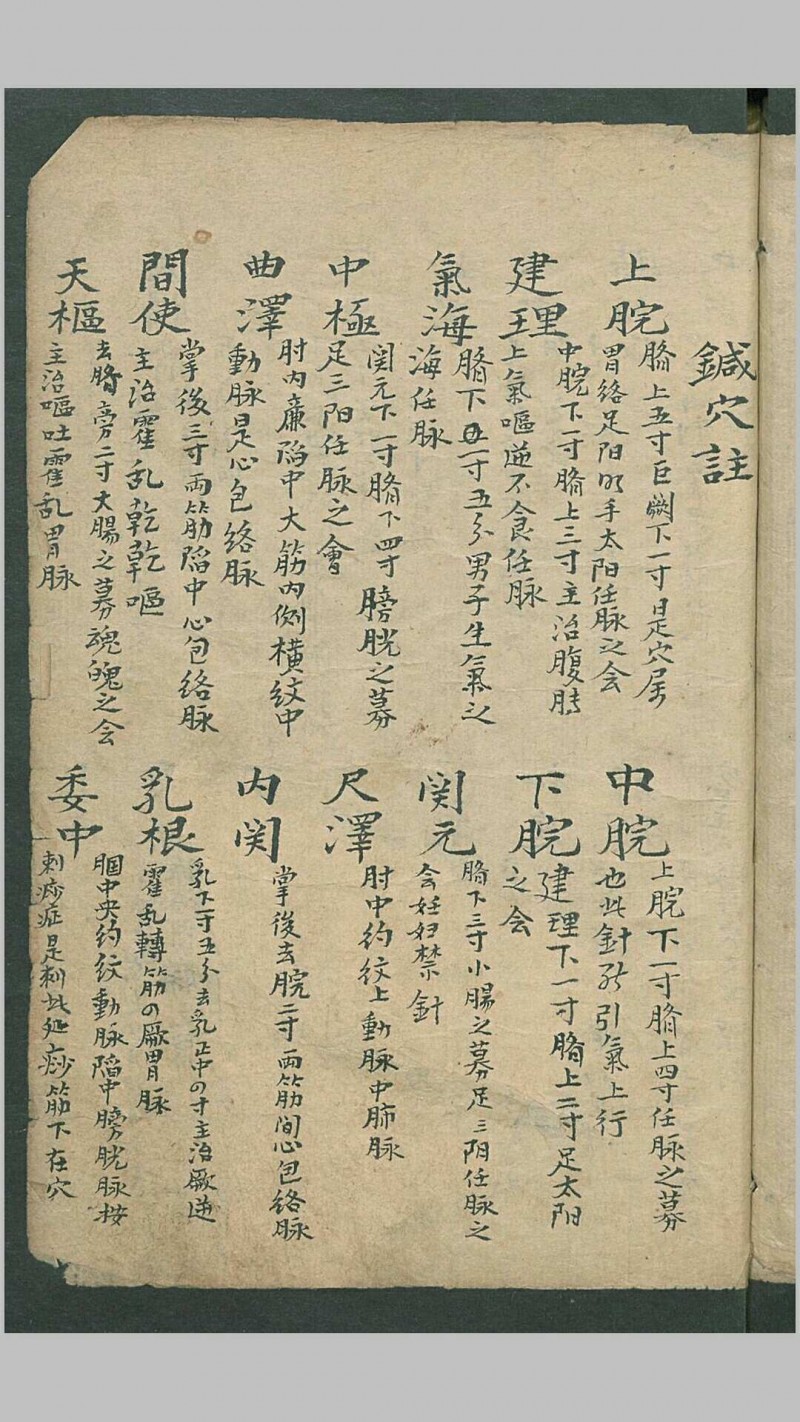 鍼穴註
上脘
臍上五寸巨闕下一寸是穴居
胃絡足阳明手太阳任脉之会
中脘
上脘下一寸臍上四寸任脉之募
也此針能引氣上行
建理
中脘下一寸臍上三寸主治腹脹
上氣嘔逆不食任脉
下脘
建理下一寸臍上二寸足太阴
之会
氣海
臍下一寸五分男子生氣之
海任脉
関元
臍下三寸小腸之募足三阴任脉之
会妊妇禁針
中極
関元下一寸臍下四寸膀胱之募
足三阴任脉之會
尺澤
肘中約紋上動脉中肺脉
曲澤
肘内廉陷中大筋内側横紋中
動脉是心包絡脉
内関
掌後去脘二寸両筋间心包絡脉
間使
掌後三寸両筋陷中心包络脉
主治霍乱乾嘔
乳根
乳下一寸五分去乳正中四寸主治厥逆
霍乱轉筋四厥胃脉
天樞
去臍旁二寸大腸之募魂魄之会
主治嘔吐霍乱胃脉
委中
腘中央约纹動脉陷中膀胱脉按
刺痧症是刺此処痧筋下在穴